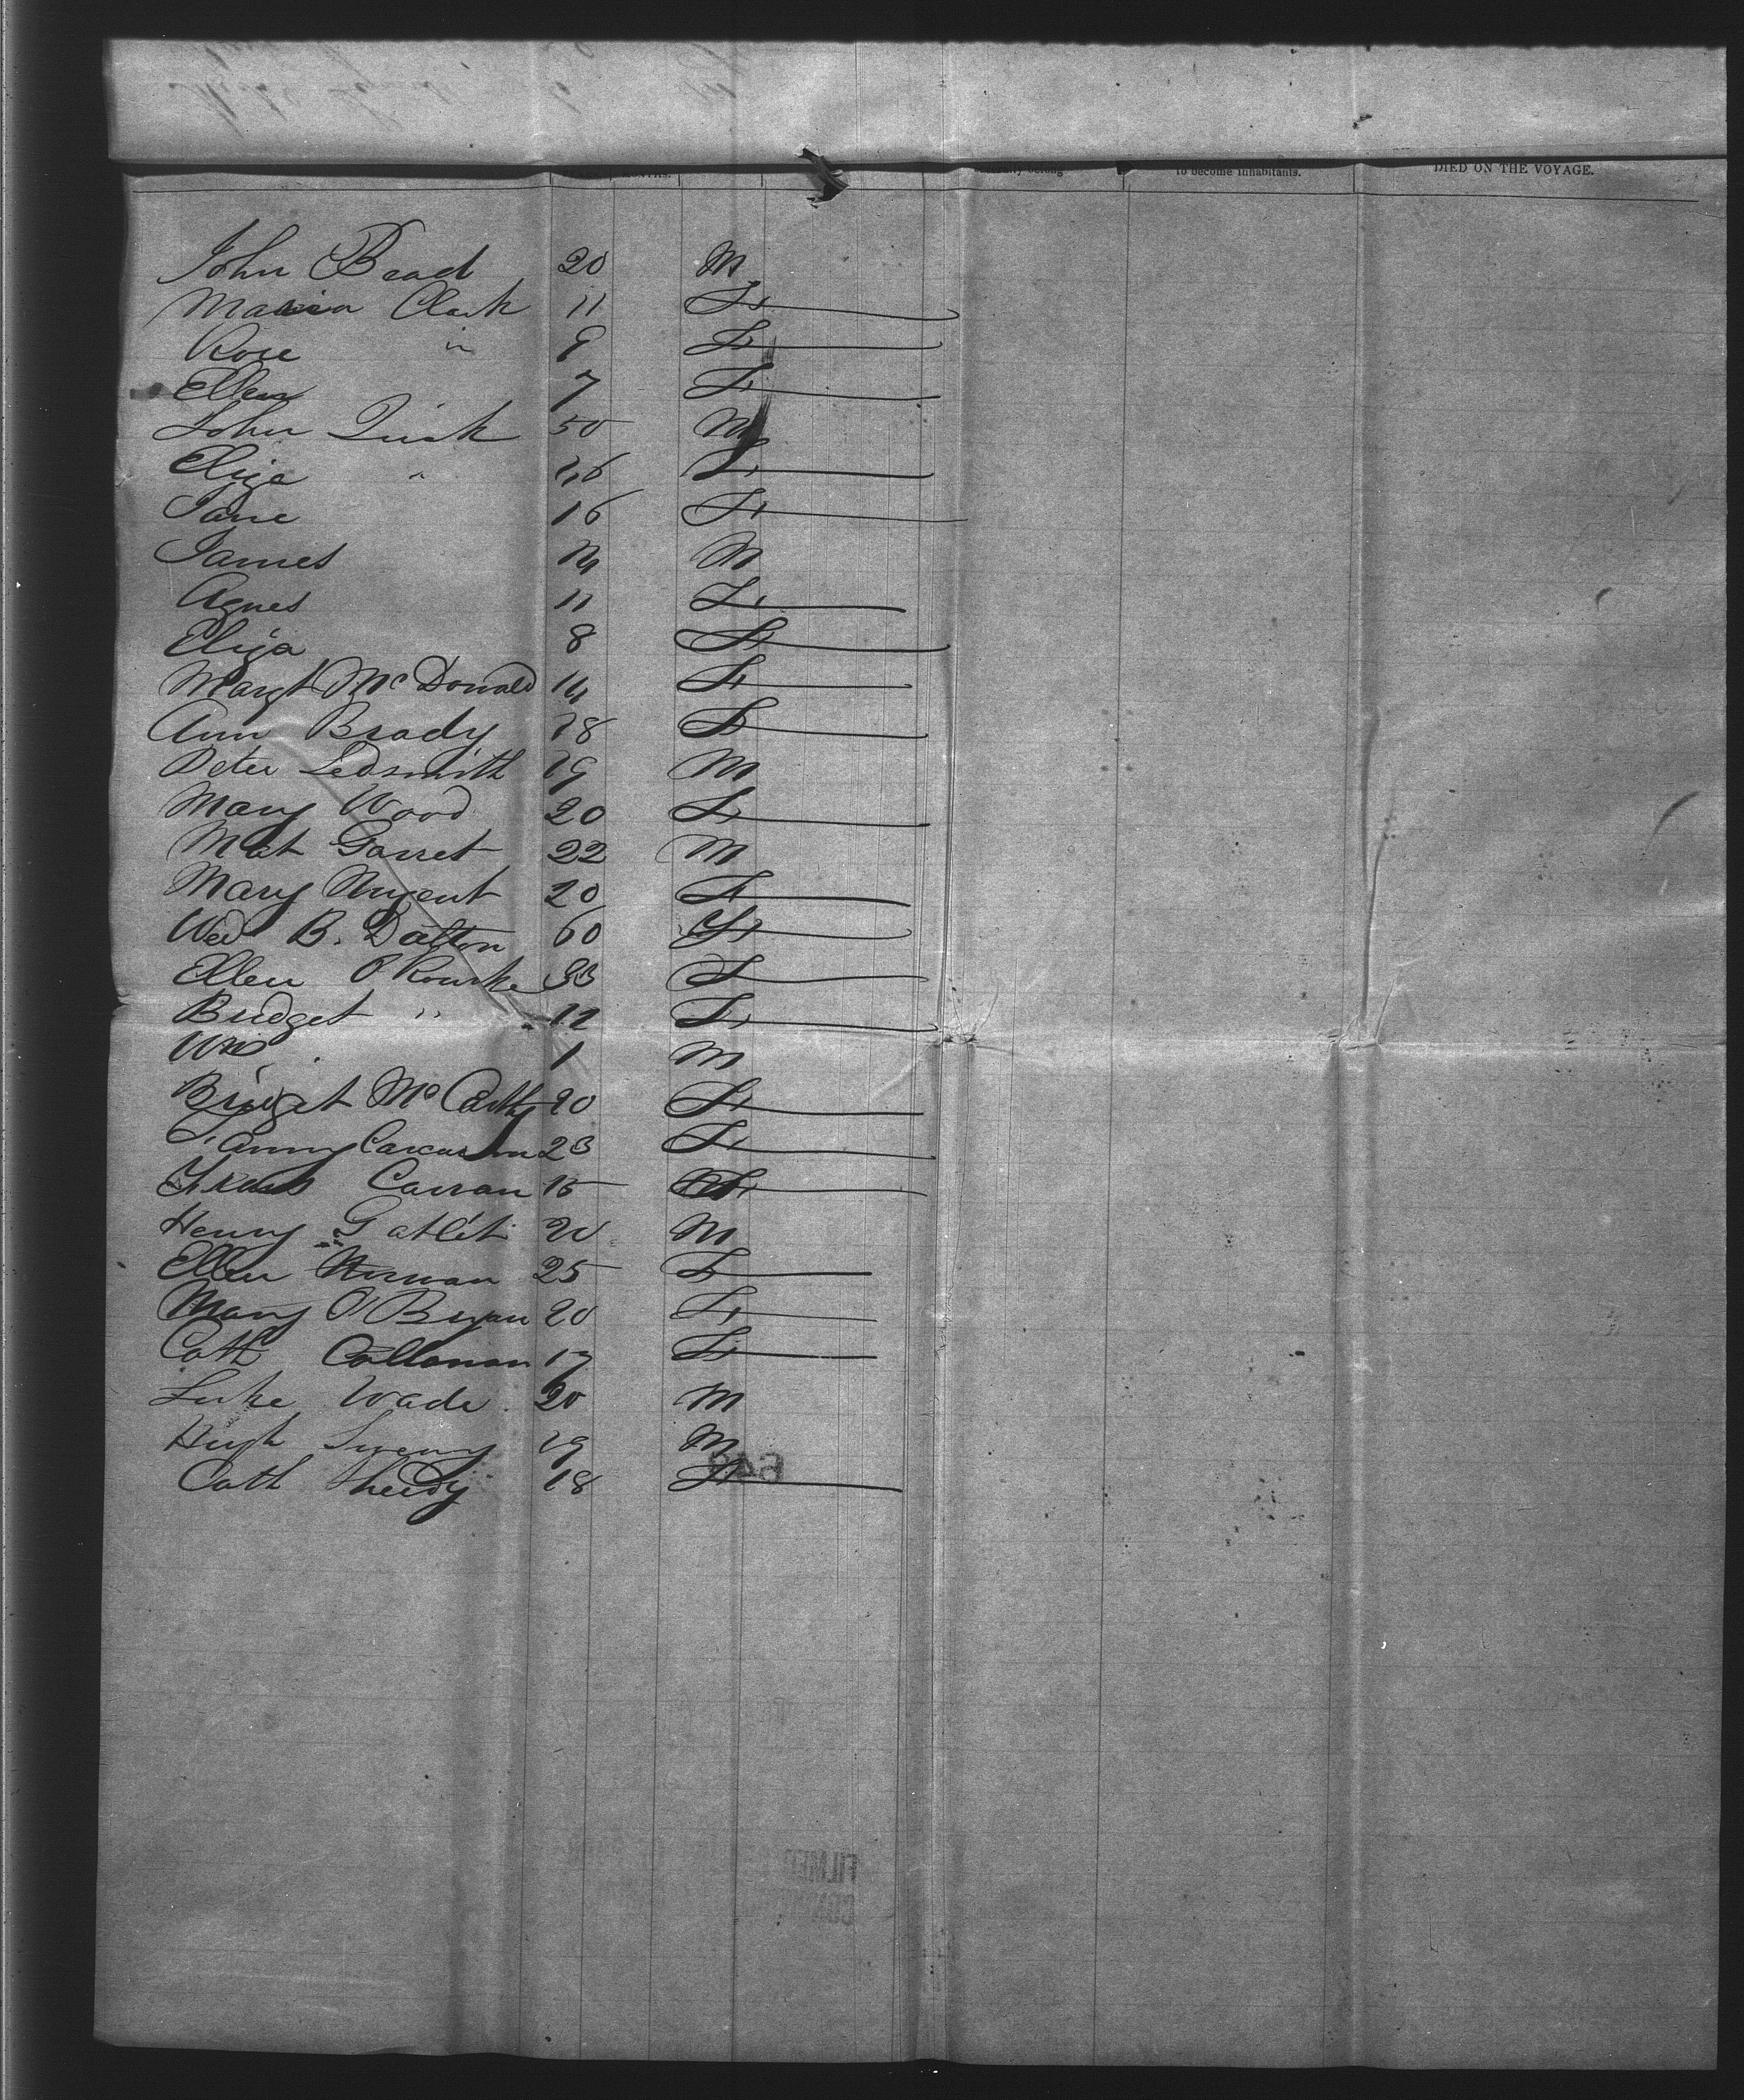 to become inhabitants. DIED ON THE VOYAGE.
John Bead 20 M
Maria Clark 11 F
Rose " 9 F
Ellen 7 F
John Quirk 50 M
Eliza " 46 F
Jane 16 F
James 14 M
Agnes 11 F
Eliza 8 F
Margt McDonald 14 F
Ann Brady 18 F
Peter Ledsmith 19 M
Mary Wood 20 F
Mat Garret 22 M
Mary Nugent 20 F
Wid B. Dalton 60 F
Ellen O'Rourke 33 F
Bridget " 12 F
Wm 1 M
Bridget McCarthy 20 F
23 F
Curran 15 F
Henry Gatlit 20 M
Ellen 25 F
Mary O'Bryan 20 F
Cath Callanan 17 F
Luke Wade 20 M
Hugh Sweeny 19 M
Cath Sheedy 18 F